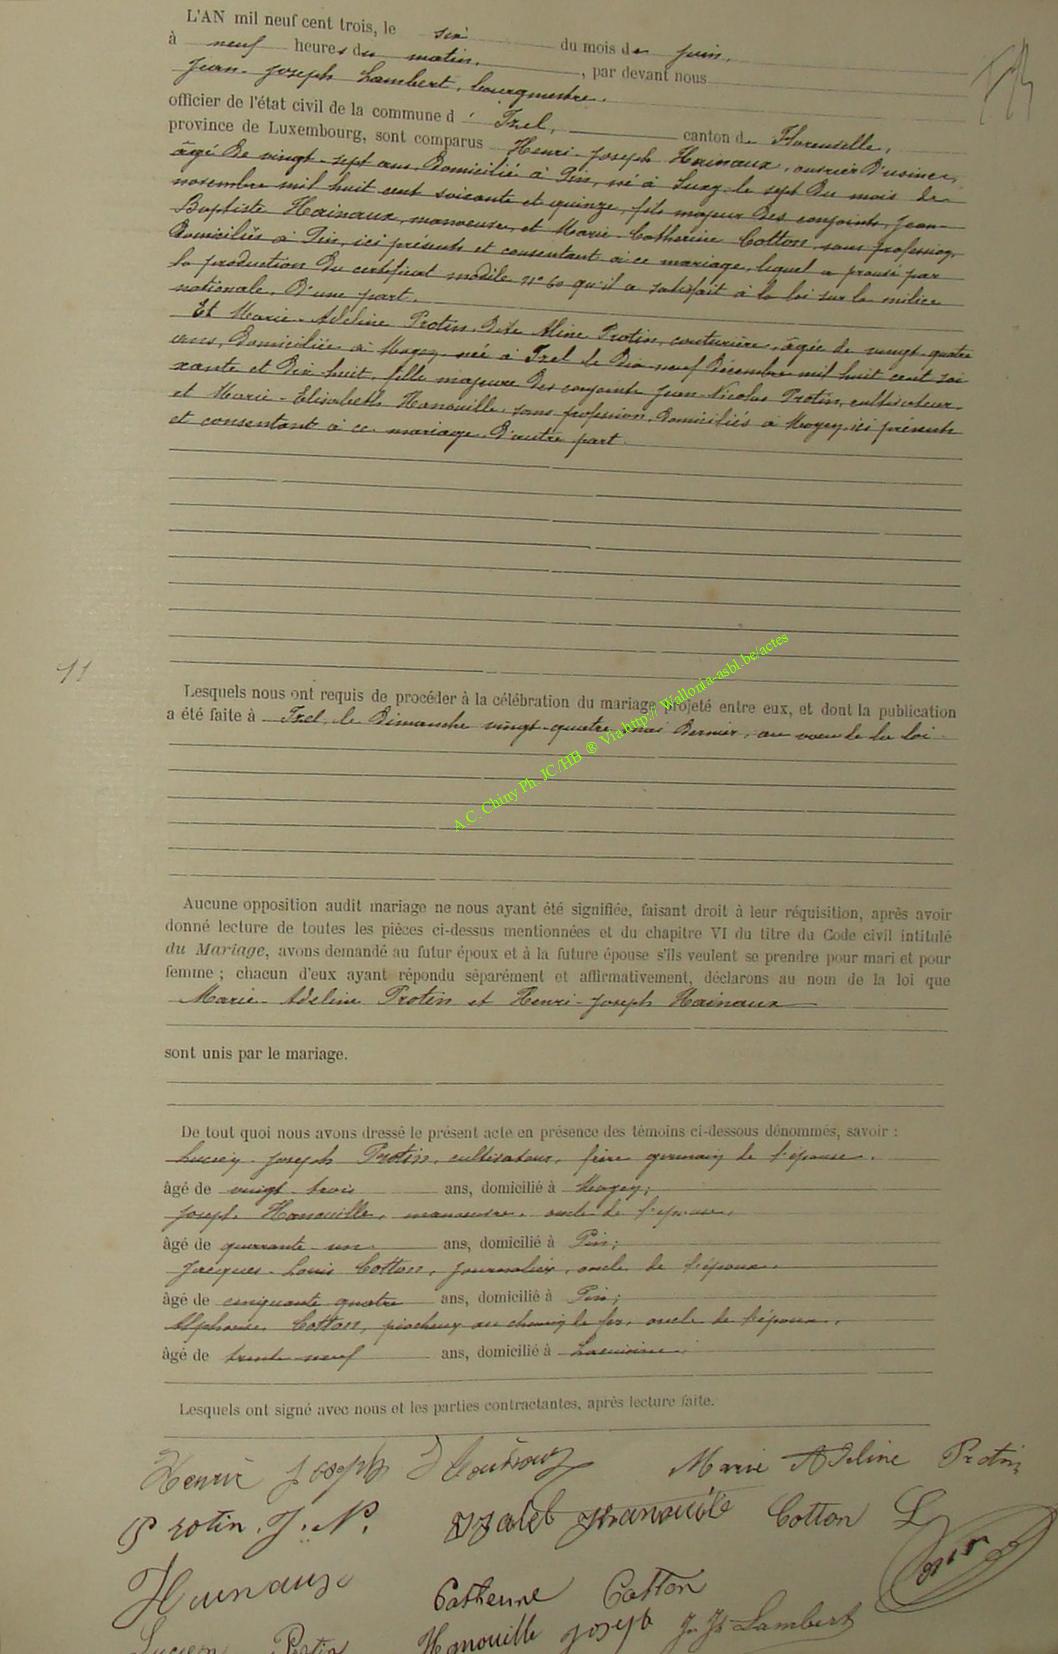 L'AN mil neuf cent trois, le six du mois de juin,
à neuf heures du matin, par devant nous
Jean-Joseph Lambert, bourgmestre,
officier de l'état civil de la commune d' Izel, canton de Florenville,
province de Luxembourg, sont comparus Henri-Joseph Hainaux, ouvrier d'usines,
âgé de vingt-sept ans, domicilié à Pin, né à Suxy le sept du mois de
novembre mil huit cent soixante et quinze, fils majeur des conjoints Jean-
Baptiste Hainaux, manoeuvre, et Marie-Catherine Cotton, sans profession,
domiciliés à Pin, ici présents et consentant à ce mariage, lequel a prouvé par
la production du certificat modèle n° 60 qu'il a satisfait à la loi sur la milice
nationale, d'une part.
Et Marie-Adeline Protin, dite Aline Protin, couturière, âgée de vingt-quatre
ans, domiciliée à Moyen, née à Izel le dix-neuf décembre mil huit cent soi
xante et dix-huit, fille majeure des conjoints Jean-Nicolas Protin, cultivateur
et Marie-Elisabeth Hanouille, sans profession, domiciliés à Moyen, ici présents
et consentant à ce mariage, d'autre part.
11
Lesquels nous ont requis de procéder à la célébration du mariage projeté entre eux, et dont la publication
a été faite à Izel, le dimanche vingt-quatre mai dernier, au voeu de la loi
A.C. Chiny Ph. JC/HB ® Via http:// Wallonia-asbl.be/actes
Aucune opposition audit mariage ne nous ayant été signifiée, faisant droit à leur réquisition, après avoir
donné lecture de toutes les pièces ci-dessus mentionnées et du chapitre VI du titre du Code civil intitulé
du Mariage, avons demandé au futur époux et à la future épouse s'ils veulent se prendre pour mari et pour
femme ; chacun d'eux ayant répondu séparément et affirmativement, déclarons au nom de la loi que
Marie-Adeline Protin et Henri-Joseph Hainaux
sont unis par le mariage.
De tout quoi nous avons dressé le présent acte en présence des témoins ci-dessous dénommés, savoir :
Lucien-Joseph Protin, cultivateur, frère germain de l'épouse,
âgé de vingt-trois ans, domicilié à Moyen;
Joseph Hanouille, manoeuvre, oncle de l'épouse,
âgé de quarante-un ans, domicilié à Pin;
Jacques-Louis Cotton, journalier, oncle de l'époux,
âgé de cinquante quatre ans, domicilié à Pin;
Alphonse Cotton, piocheur au chemin de fer, oncle de l'époux,
âgé de trente-neuf ans, domicilié à Lacuisine.
Lesquels ont signé avec nous et les parties contractantes, après lecture faite.
Henri Joseph Marie Adeline Protin
Protin. J. N. Hanouille Cotton L
Hainaux Catherine Cotton
Lucien Protin Hanouille Joseph J. Jh Lambert